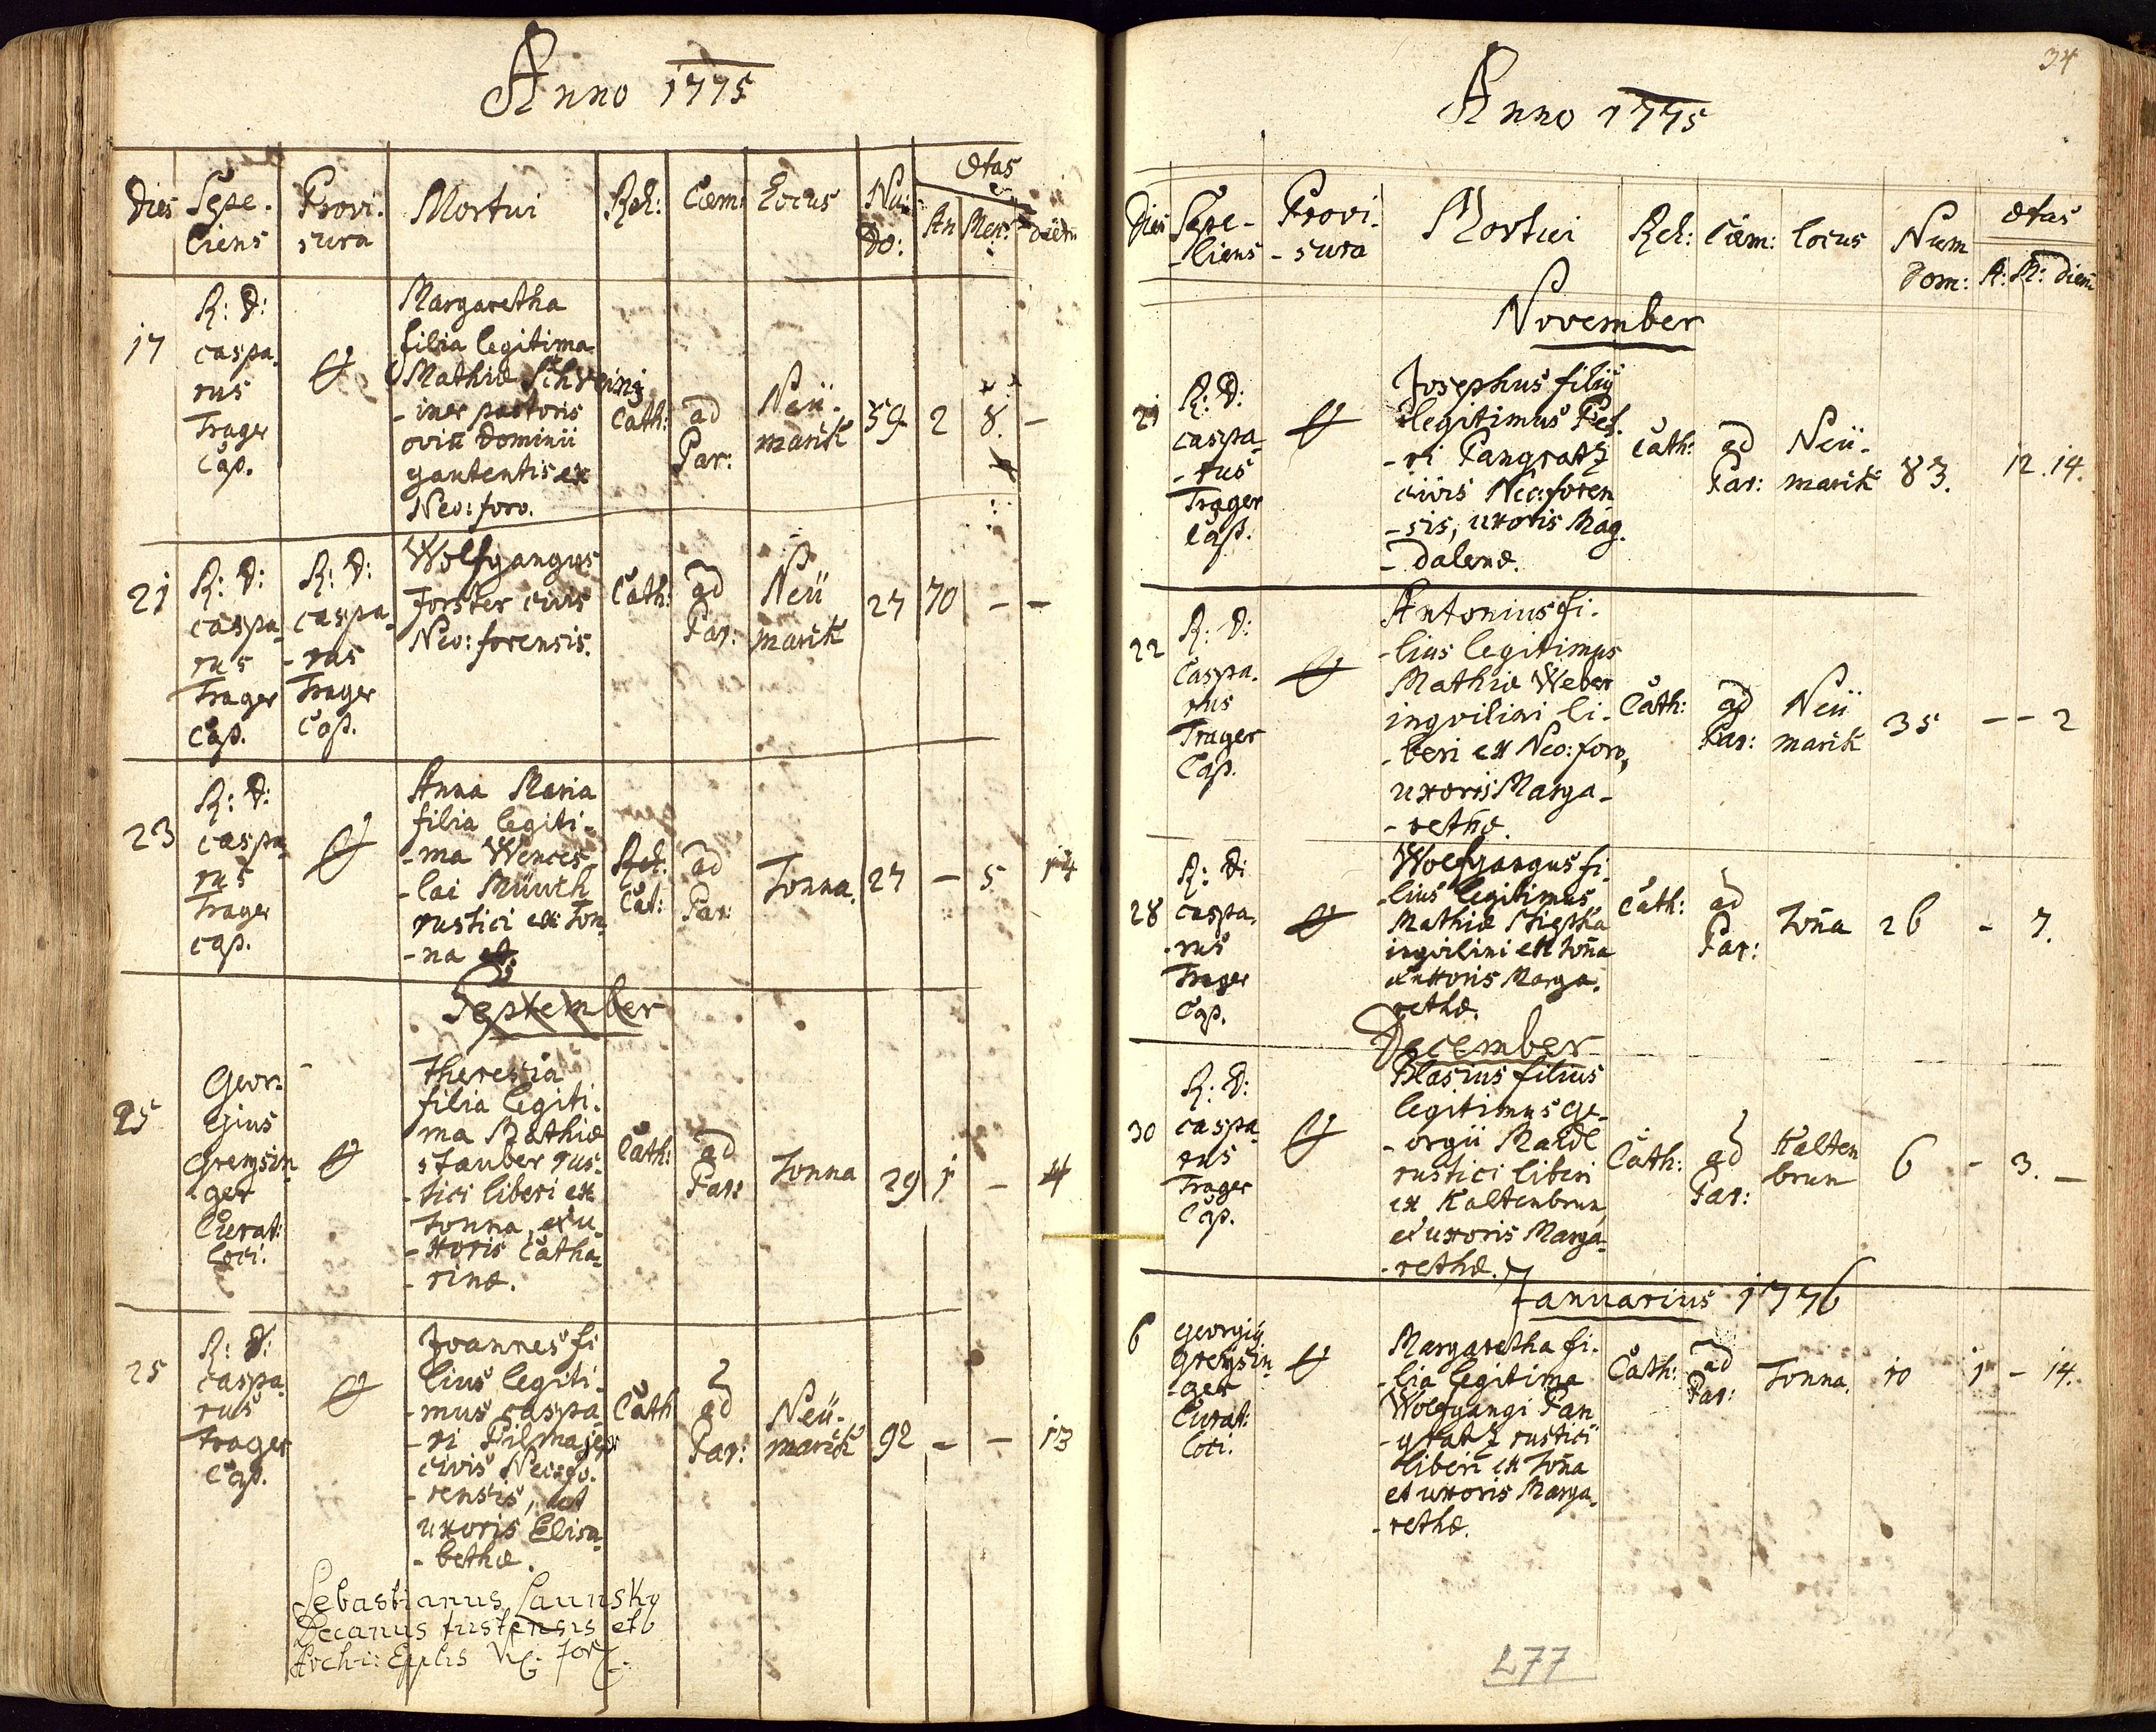 Anno 1775
Dies Sepe- Provi- Mortui Rel: Cœm: Locus Nu: Ætas
liens sura Do: An Men:
17
R: D:
caspa-
rus
Trager
Cap.
Margaretha
filia legitima
Mathiæ Schweinz
-iner pastoris
oviũ Dominii
gautentis ex
Neo: foro.
Cath: ad Par: Neü-
marik 59 2 8. -
21
R: D:
caspa-
rus
Trager
Cap.
R: D:
caspa-
-rus
Trager
Cap.
Wolfgangus
Forster civis
Neo: forensis.
Cath: ad Par: Neü
marik 27 70 - -
23
R: D:
caspa-
rus
Trager
cap.
Anna Maria
filia legiti-
-ma Wences-
-lai
rustici ex Ton-
-na
Rel: Cat: ad Par: Tonna. 27 - 5. 14
September
25
Geor-
gius
Grensin-
ger
Curat:
loci.
Theresia
filia legiti-
ma Mathiæ
Stauber rus-
-tici liberi ex
Tonna, et u-
-xoris Catha-
-rinæ.
Cath: ad Par: Tonna 29 1 - 4
25
R: D:
caspa-
rus
Trager
Cap.
Joannes fi
lius legiti-
-mus caspa-
-ri Pilmajer
civis Neo: fo-
-rensis, et
uxoris Elisa-
-bethæ.
Cath ad Par: Neü-
marik 92 - - 13
Sebastianus Launsky
Decanus tustensis et
Archi: Epplis Vic: For.
34
Anno 1775
Dies Sepe- Provi- Mortui Rel: Cœm: Locus Num Ætas
-liens -sura Dom: A: M: Diem
November
21
R: D:
caspa-
-rus
Trager
Cap.
Josephus filiy
legitimus Pet-
-ri Pangratz
civis Neo: foren
-sis, uxoris Mag-
-dalenæ.
Cath: ad Par: Neü-
marik 83. 12. 14.
22
R: D:
Caspa-
rus
Trager
Cap.
Antonius fi-
-lius legitimus
Mathiæ Weber
inqvilini li-
-beri ex Neo: foro,
uxoris Marga-
-rethæ.
Cath: ad Par: Neü
marik 35 - - 2
28
R: D:
caspa-
-rus
Trager
Cap.
Wolfgangus fi-
-lius legitimus
Mathiæ
inqvilini ex Toña
et uxoris Marga-
rethæ.
Cath: ad Par: Toña 26 - 7.
December
30
R: D:
caspa-
rus
Trager
Cap.
Blasius filius
legitimus Ge-
-orgii Maidl
rustici liberi
ex Kaltenbrun,
et uxoris Marga-
-rethæ.
Cath: ad Par: Kalten
brun 6 - 3. -
Januarius 1776
6
Georgiy
Grensin-
-ger
Curat:
loci.
Margaretha fi-
-lia legitima
Wolfgangi Pan
-gratz rustici
liberi ex Toña
et uxoris Marga-
-rethæ.
Cath: ad Par: Tonna. 10 1 - 14.
277